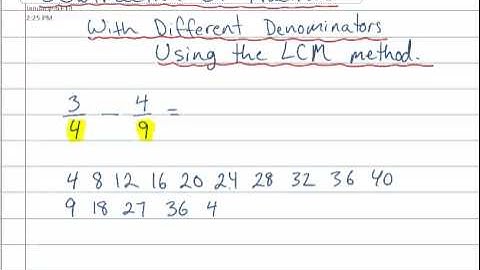 2:25 PM
With Different Denominators
Using the LCM method.
3/4 - 4/9 =
4 8 12 16 20 24 28 32 36 40
9 18 27 36 4